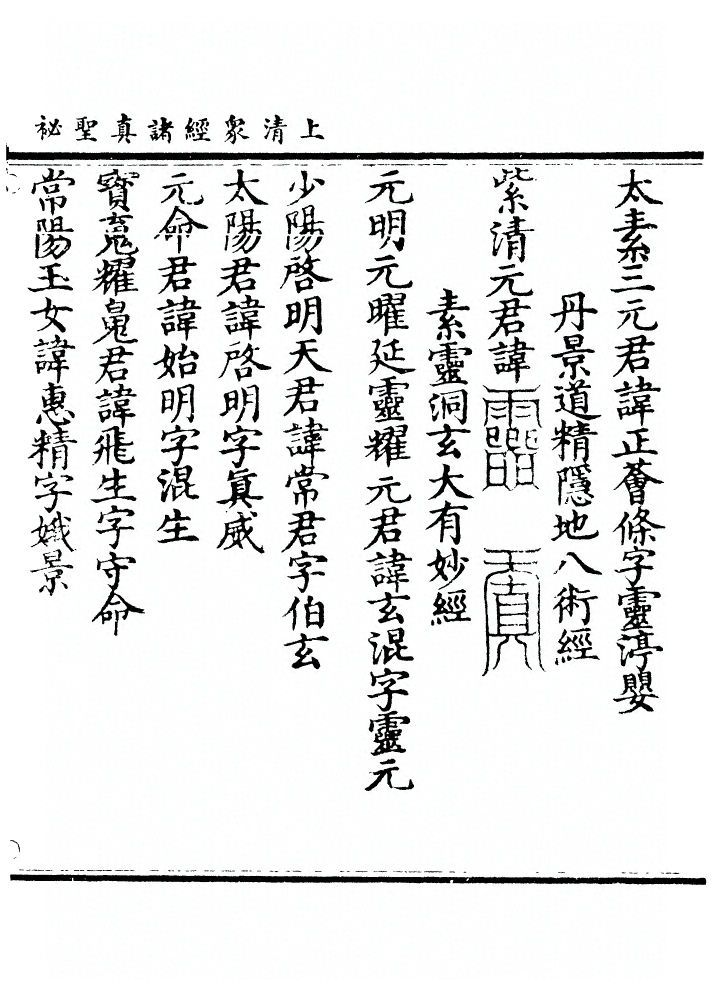 上清衆經諸真聖祕
太素三元君諱正薈條字靈渟嬰
丹景道精隱地八術經
紫清元君諱
素靈洞玄大有妙經
元明元曜延靈耀元君諱玄混字靈元
少陽啓明天君諱常君字伯玄
太陽君諱啓明字真威
元命君諱始明字混生
寶䰟耀䰟君諱飛生字守命
常陽玉女諱惠精字孅景